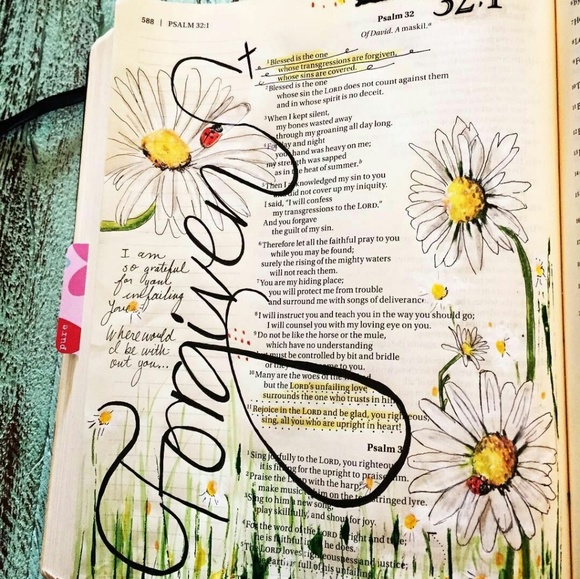 588 | PSALM 32:1
32:1
Psalm 32
Of David. A maskil.ᵃ
¹Blessed is the one
whose transgressions are forgiven,
whose sins are covered.
²Blessed is the one
whose sin the LORD does not count against them
and in whose spirit is no deceit.
³When I kept silent,
my bones wasted away
through my groaning all day long.
⁴For day and night
your hand was heavy on me;
my strength was sapped
as in the heat of summer.ᵃ
⁵Then I acknowledged my sin to you
did not cover up my iniquity.
I said, "I will confess
my transgressions to the LORD."
And you forgave
the guilt of my sin.
⁶Therefore let all the faithful pray to you
while you may be found;
surely the rising of the mighty waters
will not reach them.
⁷You are my hiding place;
you will protect me from trouble
and surround me with songs of deliverance
⁸I will instruct you and teach you in the way you should go;
I will counsel you with my loving eye on you.
⁹Do not be like the horse or the mule,
which have no understanding
but must be controlled by bit and bridle
or they come to you.
¹⁰Many are the woes of the
but the LORD's unfailing love
surrounds the one who trusts in him.
¹¹Rejoice in the LORD and be glad, you righteous;
sing, all you who are upright in heart!
Psalm 3
¹Sing joyfully to the LORD, you righteous
it is fitting for the upright to praise him.
²Praise the LORD with the harp;
make music to him on the ten-stringed lyre.
³Sing to him a new song;
play skillfully, and shout for joy.
⁴For the word of the LORD is right and true;
he is faithful in all he does.
⁵The LORD loves righteousness and justice;
the earth is full of his unfailing
Forgiven
I am
so grateful
for your
unfailing
love!
Where would
I be with
out you...
pure